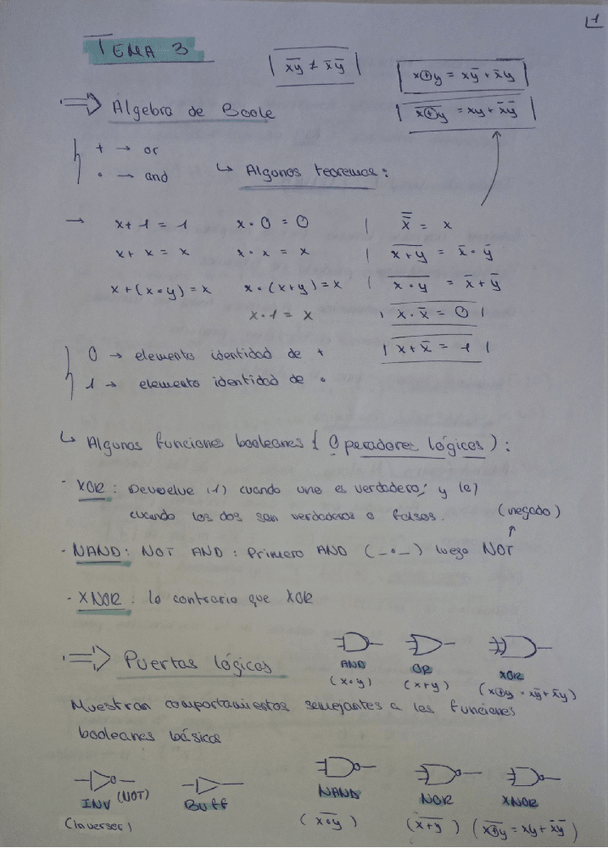 1
TEMA 3
x̅y̅ ≠ x̄ȳ
x⊕y = xȳ + x̄y
x̅⊕̅y̅ = xy + x̄ȳ
⇒ Álgebra de Boole
+ → or
• → and
↳ Algunos teoremas:
→ x + 1 = 1 x • 0 = 0 x̿ = x
x + x = x x • x = x x̅+̅y̅ = x̄ • ȳ
x + (x • y) = x x • (x + y) = x x̅•̅y̅ = x̄ + ȳ
x • 1 = x x • x̄ = 0
x + x̄ = 1
0 → elemento identidad de +
1 → elemento identidad de •
↳ Algunas funciones booleanas (Operadores lógicos):
· XOR: Devuelve (1) cuando uno es verdadero, y (0)
cuando los dos son verdaderos o falsos.
(negado)
· NAND: NOT AND: Primero AND (_•_) luego NOT
· XNOR: lo contrario que XOR
⇒ Puertas lógicas
AND OR XOR
(x•y) (x+y) (x⊕y = xȳ + x̄y)
Muestran comportamientos semejantes a las funciones
booleanas básicas
INV (NOT) Buff NAND NOR XNOR
(Inversor) (x̅•̅y̅) (x̅+̅y̅) (x̅⊕̅y̅ = xy + x̄ȳ)